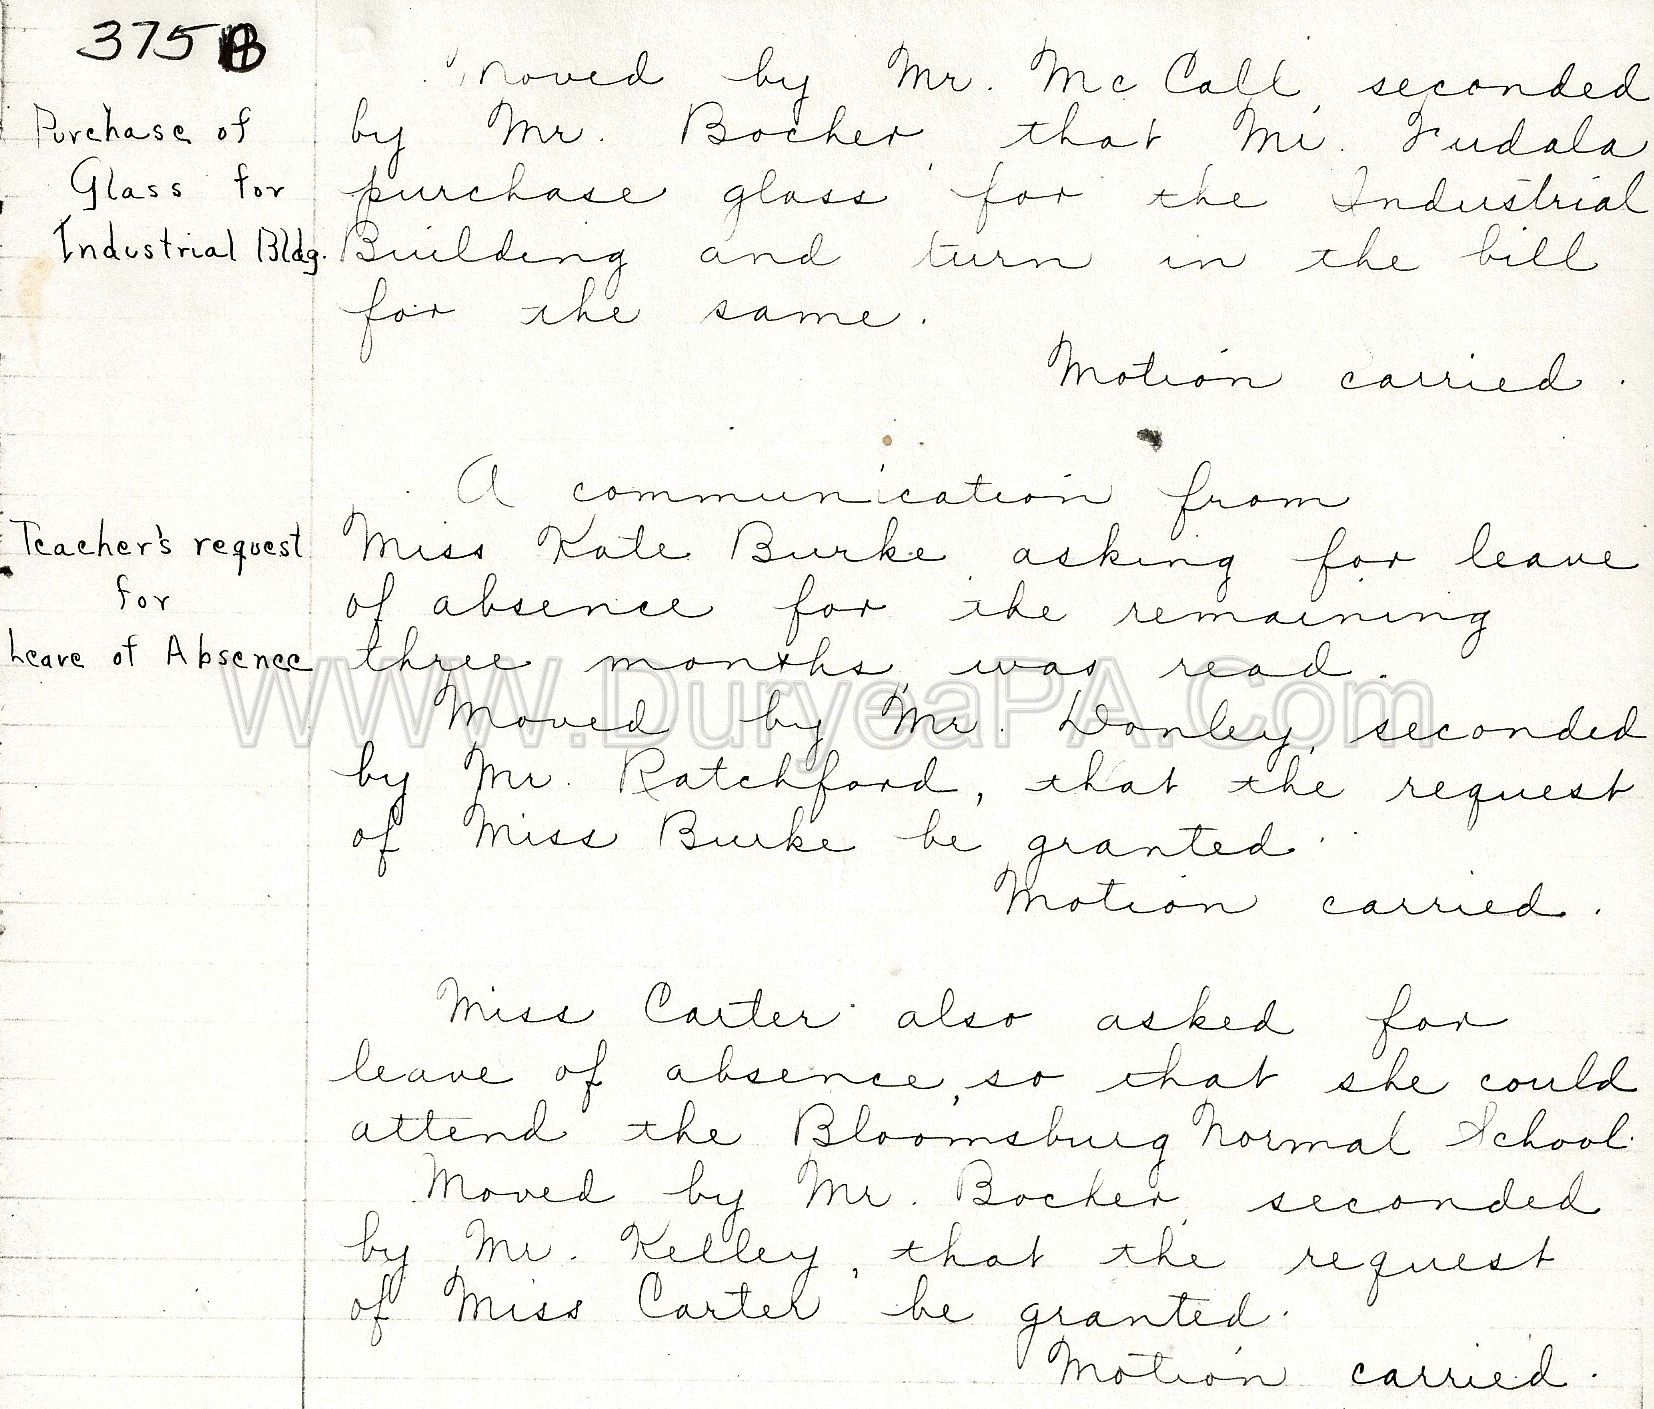 375 B
Moved by Mr. McCall, seconded
Purchase of
by Mr. Bocher, that Mr. Fudala
Glass for
purchase glass for the Industrial
Industrial Bldg.
Building and turn in the bill
for the same.
Motion carried.
A communication from
Teacher's request
Miss Kate Burke, asking for leave
for
of absence for the remaining
Leave of Absence
three months, was read.
WWW.DuryeaPA.Com
Moved by Mr. Donley, seconded
by Mr. Ratchford, that the request
of Miss Burke be granted.
Motion carried.
Miss Carter also asked for
leave of absence, so that she could
attend the Bloomsburg Normal School.
Moved by Mr. Bocher, seconded
by Mr. Kelley, that the request
of Miss Carter be granted.
Motion carried.